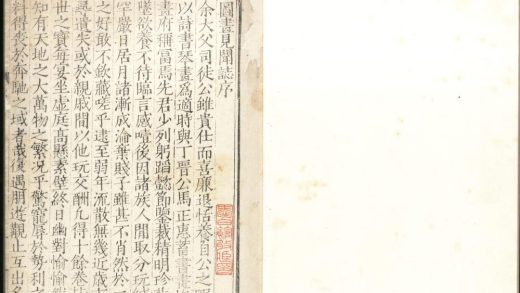 圖畫見聞誌序
余大父司徒公雖貴仕而喜廉退恬養自公之
以詩書琴畫爲適時與丁晉公馬正惠蓄書畫
畫府稱富焉先君少列躬蹈懿節鑒裁精明珍
墜欲養不待臨言感噎後因諸族人間取分玩
罕嚴日居月諸漸成淪棄賤子雖甚不肖然於
之好敢不欽藏嗟乎逮至弱年流散無幾近歲
尋遺失或於親戚間以他玩交酬凡得十餘卷
世之寶每宴坐虛庭高懸素壁終日幽對愉愉
知有天地之大萬物之繁況乎驚寵辱於勢利之
料得喪於奔馳之域者哉復遇朋遊觀止互出名